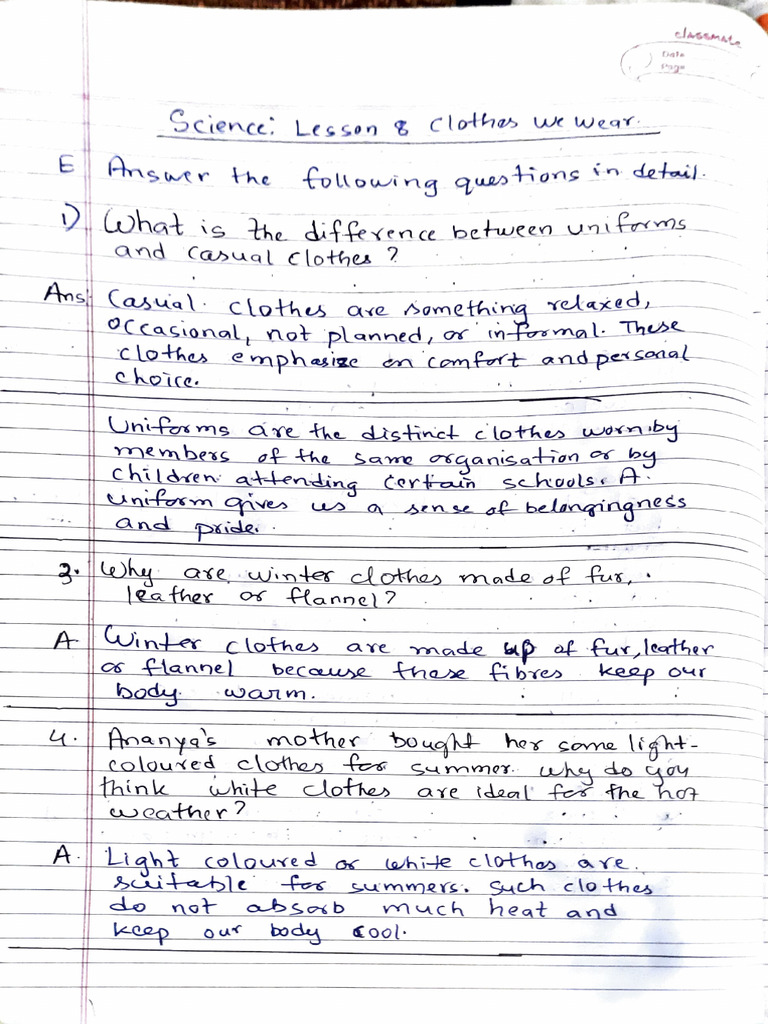 classmate
Date
Page
Science: Lesson 8 Clothes we wear.
E Answer the following questions in detail.
1) What is the difference between uniforms
and casual clothes?
Ans: Casual clothes are something relaxed,
occasional, not planned, or informal. These
clothes emphasize on comfort and personal
choice.
Uniforms are the distinct clothes worn by
members of the same organisation or by
children attending certain schools. A
uniform gives us a sense of belongingness
and pride.
3. Why are winter clothes made of fur,
leather or flannel?
A Winter clothes are made up of fur, leather
or flannel because these fibres keep our
body warm.
4. Ananya's mother bought her some light-
coloured clothes for summer. Why do you
think white clothes are ideal for the hot
weather?
A. Light coloured or white clothes are
suitable for summers. Such clothes
do not absorb much heat and
keep our body cool.